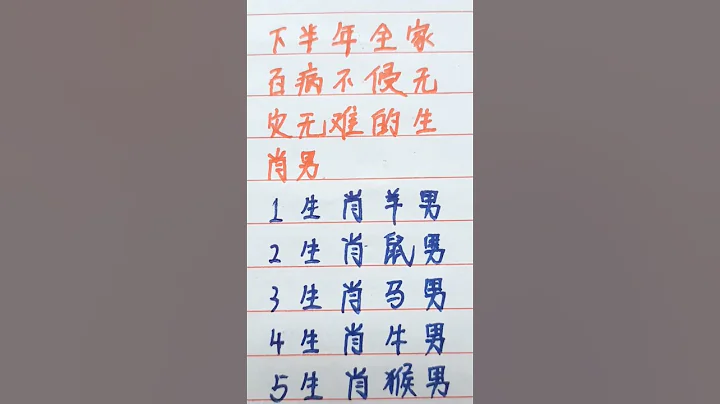 下半年全家
百病不侵无
灾无难的生
肖男
1生肖羊男
2生肖鼠男
3生肖马男
4生肖牛男
5生肖猴男